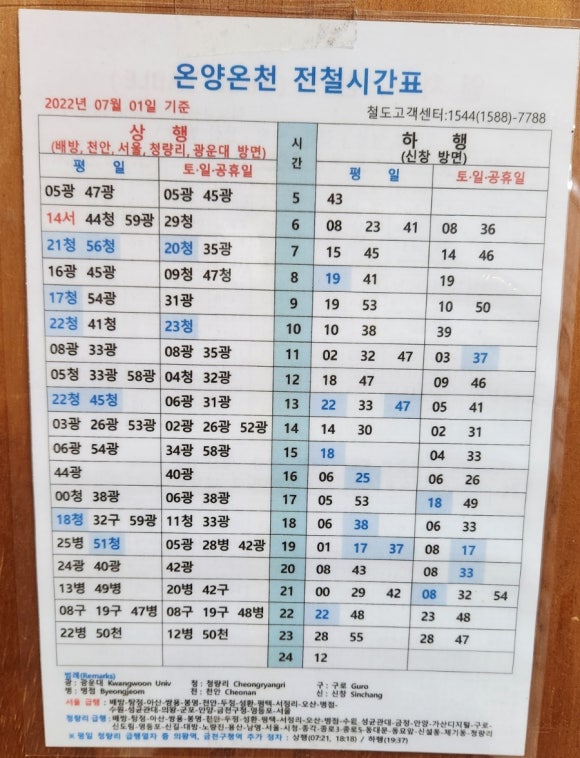 온양온천 전철시간표
2022년 07월 01일 기준
철도고객센터:1544(1588)-7788
상 행 시 간 하 행
(배방, 천안, 서울, 청량리, 광운대 방면) (신창 방면)
평 일 토·일·공휴일 평 일 토·일·공휴일
05광 47광 05광 45광 5 43
14서 44청 59광 29청 6 08 23 41 08 36
21청 56청 20청 35광 7 15 45 14 46
16광 45광 09청 47청 8 19 41 19
17청 54광 31광 9 19 53 10 50
22청 41청 23청 10 10 38 39
08광 33광 08광 35광 11 02 32 47 03 37
05청 33광 58광 04청 32광 12 18 47 09 46
22청 45청 06광 31광 13 22 33 47 05 41
03광 26광 53광 02광 26광 52광 14 14 30 02 31
06광 54광 34광 58광 15 18 04 33
44광 40광 16 06 25 06 26
00청 38광 06광 38광 17 05 53 18 49
18청 32구 59광 11청 33광 18 06 38 06 33
25병 51청 05광 28병 42광 19 01 17 37 08 17
24광 40광 42광 20 08 43 08 33
13병 49병 20병 42구 21 00 29 42 08 32 54
08구 19구 47병 08구 19구 48병 22 22 48 23 48
22병 50천 12병 50천 23 28 55 28 47
24 12
범례(Remarks)
광 : 광운대 Kwangwoon Univ 청 : 청량리 Cheongryangri 구 : 구로 Guro
병 : 병점 Byeongjeom 천 : 천안 Cheonan 신 : 신창 Sinchang
서울 급행 : 배방-탕정-아산-쌍용-봉명-천안-두정-성환-평택-서정리-오산-병점-
수원-성균관대-의왕-군포-안양-금천구청-영등포-서울
청량리 급행 : 배방-탕정-아산-쌍용-봉명-천안-두정-성환-평택-서정리-오산-병점-수원-성균관대-금정-안양-가산디지털-구로-
신도림-영등포-신길-대방-노량진-용산-남영-서울-시청-종각-종로3-종로5-동대문-동묘앞-신설동-제기동-청량리
※ 평일 청량리 급행열차 중 의왕역, 금천구청역 추가 정차 : 상행(07:21, 18:18) / 하행(19:37)